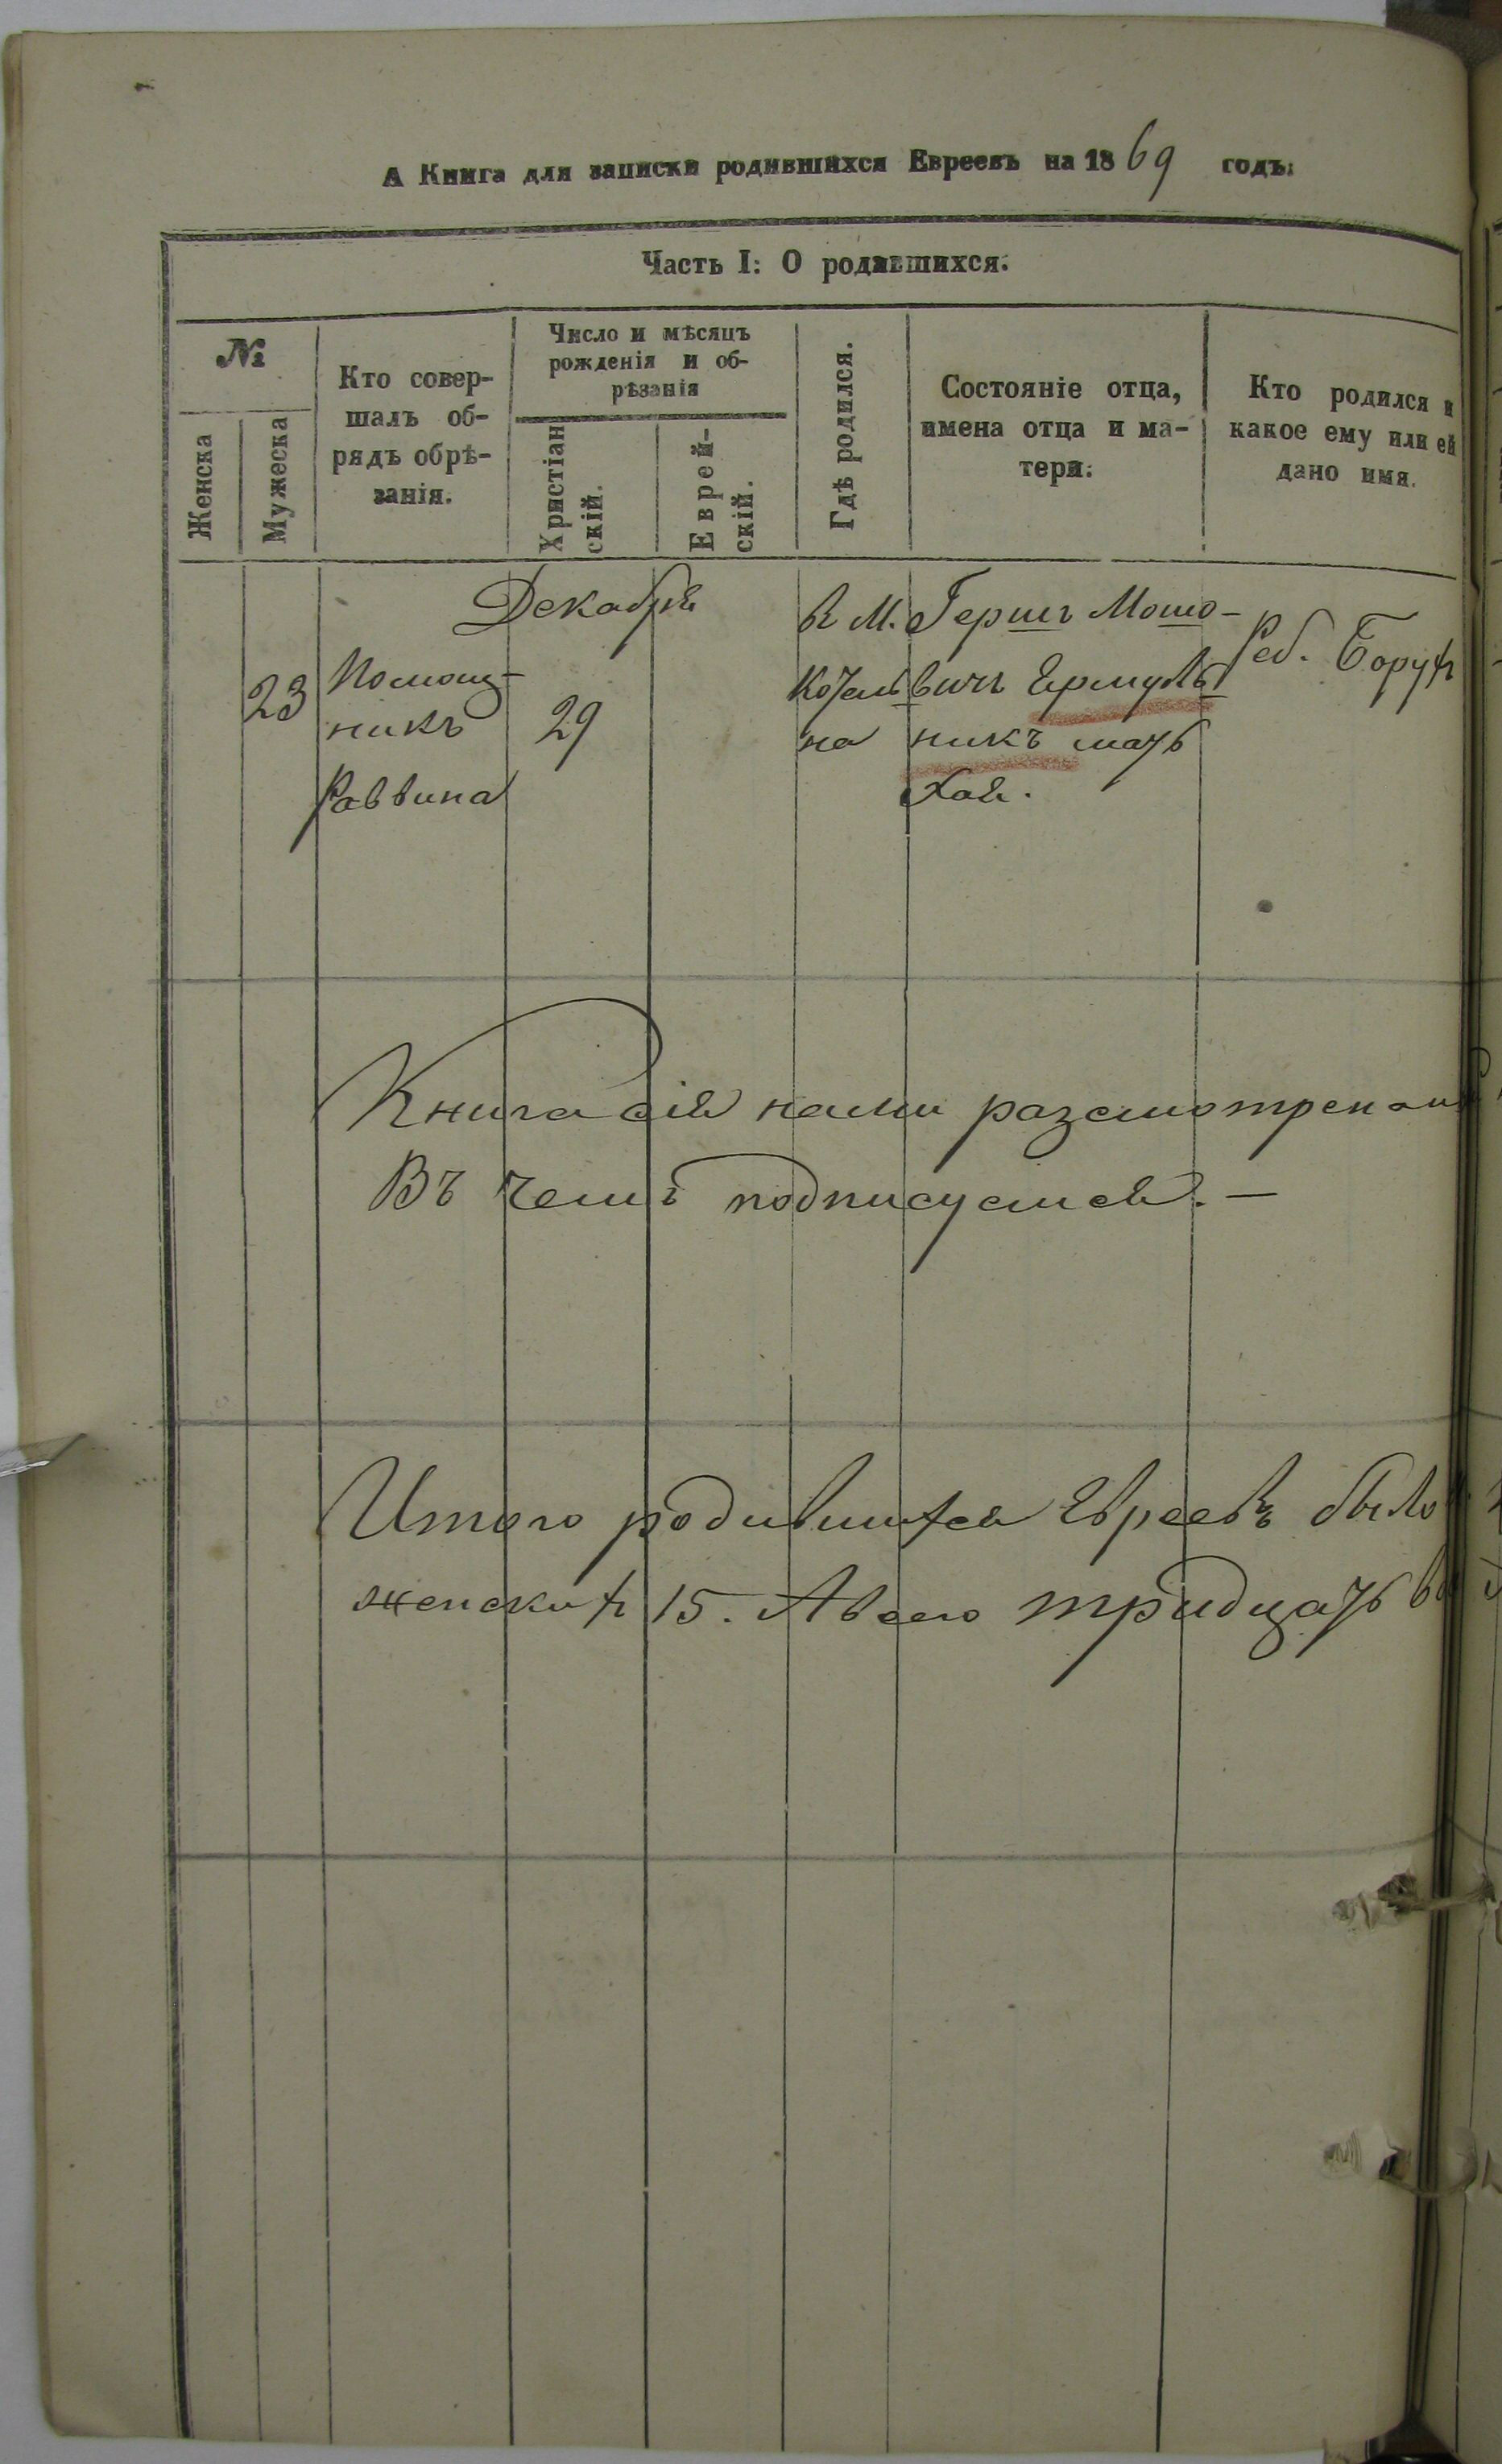 А Книга для записки родившихся Евреевъ на 1869 годъ:
Часть I: О родившихся.
№
Женска
Мужеска
Кто совер-
шалъ об-
рядъ обрѣ-
занія.
Число и мѣсяцъ
рожденія и об-
рѣзанія
Христіан
скій.
Еврей-
скій.
Гдѣ родился.
Состояніе отца,
имена отца и ма-
тери.
Кто родился и
какое ему или ей
дано имя.
Декабря
23
Помощ-
никъ
Раввина
29
в М.
Кочель
на
Гершъ Мошо-
вичъ Ермуль
никъ мать
Хая.
Реб. Борух
Книга сія нами разсмотрена
Въ чемъ подписуемся. —
Итого родившихся Евреевъ было
женских 15. А всего тридцать во